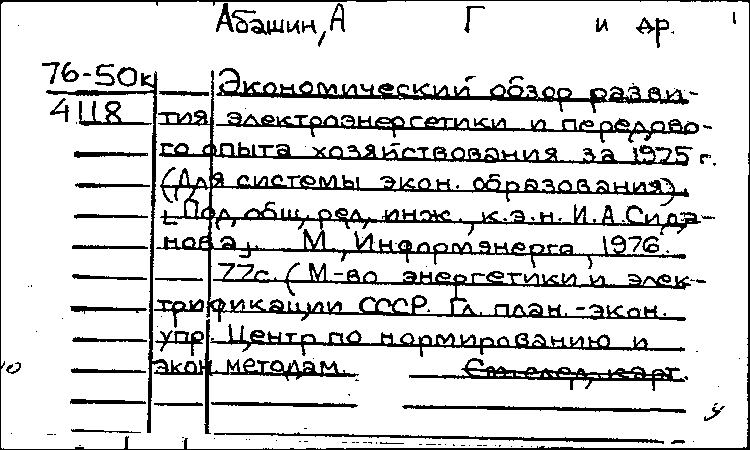 Абашин, А Г и др.
76-50к Экономический обзор разви-
4118 тия электроэнергетики и передово-
го опыта хозяйствования за 1975 г.
(Для системы экон. образования).
[Под общ. ред. инж., к.э.н. И.А.Сидя-
нова]. М., Информэнерго, 1976.
77с. (М-во энергетики и элек-
трификации СССР. Гл. план.-экон.
упр. Центр по нормированию и
экон методам.